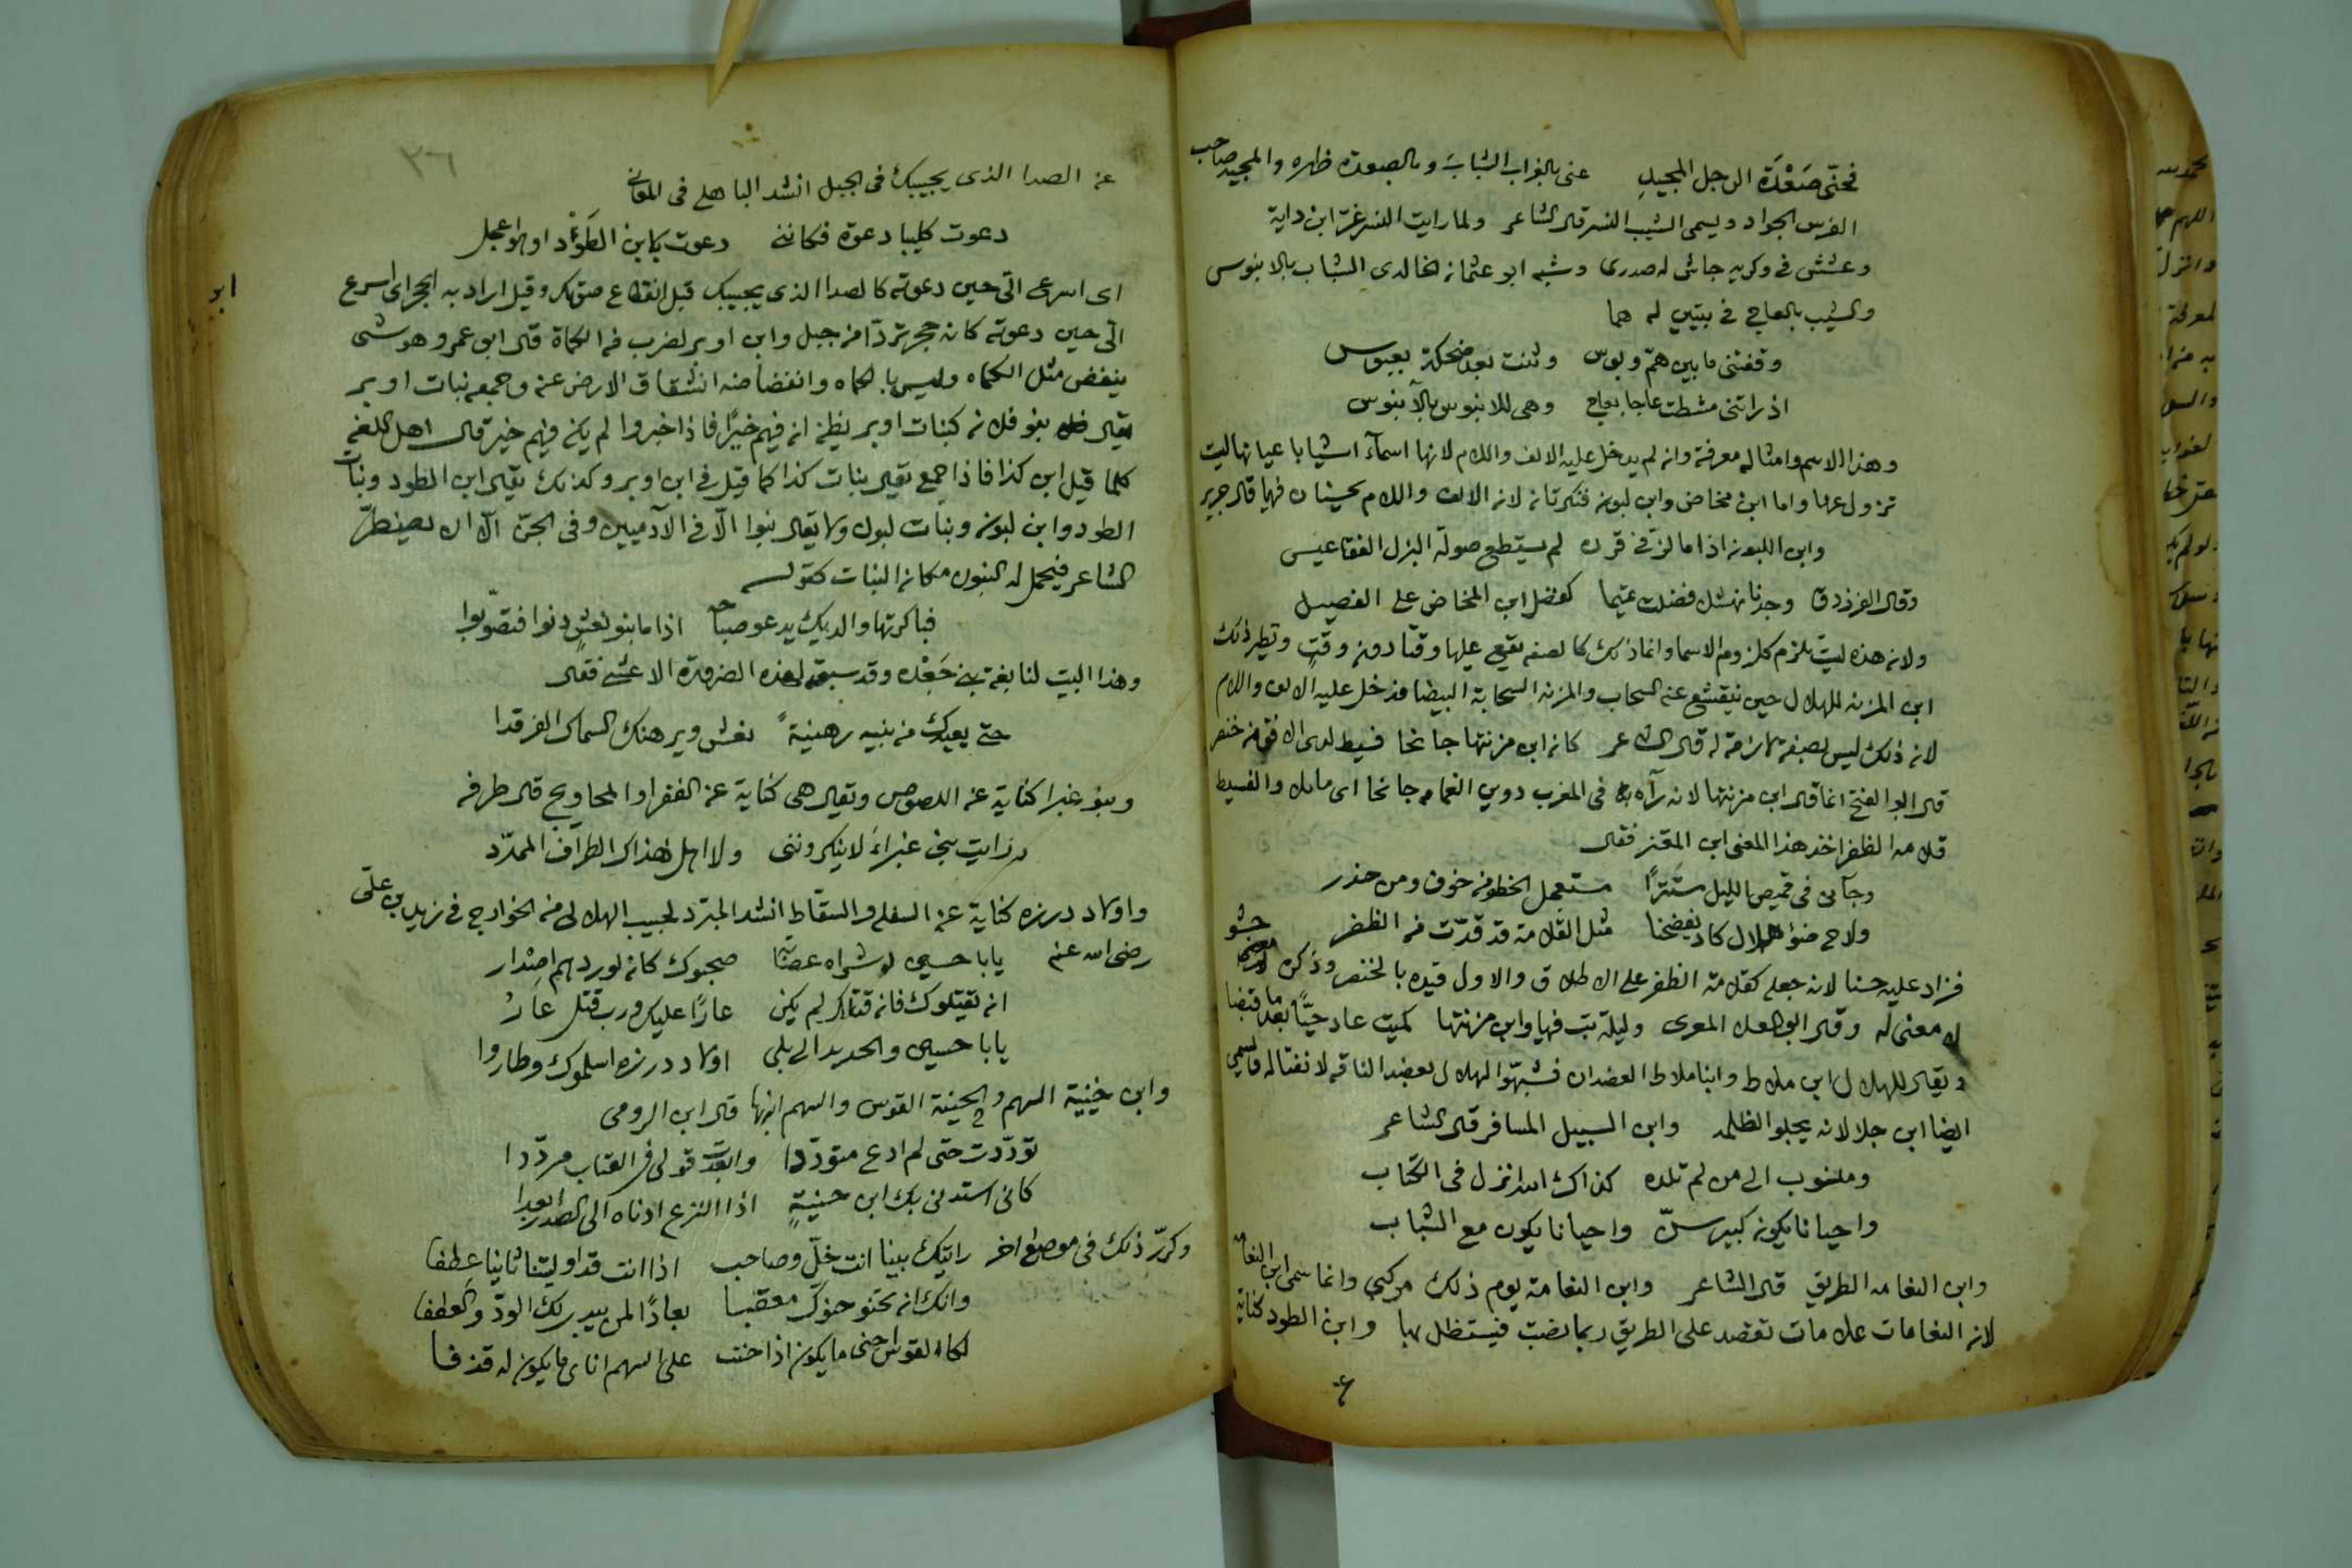 فحنى صَعْدَة الرجل المجيدِ عنى بالغراب الشباب وبالصعدة ظهره والمجيد صاحب
الفرس الجواد ويسمى الشيب النسر قال الشاعر ولما رايت النسر عز ابن داية
وعشش في وكريه جاش له صدرى وشبه ابو عثمان الخالدى الشباب بالابنوس
والشيب بالعاج في بيتين له هما
وقفتنى ما بين همّ وبوس وثنت بعد ضحكة بعبوس
اذ راتنى مشطت عاجا بعاج وهى للابنوس بالآبنوس
وهذا الاسم وامثاله معرفة وان لم يدخل عليه الالف واللام لانها اسمآء اشيا باعيانها ليت
تزول عنها واما ابن مخاض وابن لبون فنكرتان لان الالف واللام يحسنان فيها قال جرير
وابن اللبون اذا ما لزّ في قرن لم يستطع صولة البزل القناعيس
وقال الفرزدق وجدنا نهشلا فضلت فقيما كفضل ابن المخاض على الفصيل
ولان هذه ليت تلزم كلزوم الاسما وانما ذلك كالصفه يقع عليها وقتًا دون وقتٍ ونظير ذلك
ابن المزنه للهلال حين ينقشع عنه السحاب والمزنه السحابة البيضا فدخل عليه الالف واللام
لان ذلك ليس بصفة لازمة له قال الشاعر كان ابن مزنتها جانحا فسيط لدى الافق من خنصر
قال ابو الفتح انما قال ابن مزنتها لانه رآه في المغرب دوين الغمام جانحا اى مايل والفسيط
قلامه الظفر اخذ هذا المعنى ابن المعتز فقال
وجآنى فى قميص الليل مستترًا مستعجل الخطو من خوف ومن حذر
ولاح ضوا هلال كاد يفضحنا مثل القلامة قد قدّت من الظفر
فزاد عليه حسنا لانه جعله كقلامة الظفر على الاطلاق والاول قيده بالخنصر وذكره حشو
لا معنى له وقال ابو العلا المعرى وليلة بت فيها وابن مزنتها كميت عاد حيًّا بعد ما قبضا
ويقال للهلال ابن ملاط وابنا ملاط العضدان فشبهوا الهلال بعضد الناقه لانفتاله ويسمى
ايضا ابن جلا لانه يجلو الظلمه وابن السبيل المسافر قال الشاعر
ومنسوب الى من لم تلده كذاك الله انزل فى الكتاب
واحيانا يكون كبير سنّ واحيانا يكون مع الشباب
وابن النعامه الطريق قال الشاعر وابن النعامة يوم ذلك مركبى وانما سمى ابن النعامه
لان النعامات علامات تقصد على الطريق ربما نصبت فيستظل بها وابن الطود كناية
ع
٣٦
عن الصدا الذى يجيبك فى الجبل انشد الباهلى فى المعانى
دعوت كليبا دعوة فكاننى دعوت بابن الطَوْدِ او هو اعجل
اى اسرع الىّ حين دعوته كالصدا الذى يجيبك قبل انقطاع صوتك وقيل اراد به الحجر اى اسرع
الىّ حين دعوته كانه حجر تردّا من جبل وابن اوبر لضرب من الكماة قال ابو عمرو هو شى
ينفض مثل الكماه وليس بالكماه وانفضاضه انشقاق الارض عنه وجمعه نبات اوبر
يقال بنو فلان كبنات اوبر يظن ان فيهم خيرًا فاذا خبروا لم يكن فيهم خير قال اهل اللغه
كلما قيل ابن كذا فاذا جمع يقال بنات كذا كما قيل في ابن اوبر وكذلك يقال ابن الطود وبنات
الطود وابن لبون وبنات لبون ولا يقال بنوا الّا في الآدميين وفى الجنّ الّا ان يضطرّ
الشاعر فيحمل له البنون مكان البنات كقوله
فباكرتها والديك يدعو صباحه اذا ما بنو نعشٍ دنوا فتصوّبوا
وهذا البيت لنابغة بنى جَعْدَه وقد سبقه لهذه الضرورة الاعشى فقال
حتى يعيدك من بنيه رهينةً نعش ويرهنك السماك الفرقدا
وبنو غبرا كناية عن اللصوص ويقال هى كناية عن الفقرا والمحاويج قال طرفه
رايت بنى غبراءَ لا ينكروننى ولا اهل هذاك الطراف الممدّد
واولاد درزه كناية عن السفله والسقاط انشد المبرد لحبيب الهلالى من الخوارج فى زيد بن على
رضى الله عنه يابا حسين لو شراه عصابة صحبوك كان لوردهم اصدار
ان يقتلوك فان قتلك لم يكن عارًا عليك ورب قتل عارُ
يابا حسين والحديد الى بلى اولاد درزه اسلموك وطاروا
وابن حنيّة السهم والحنيّة القوس والسهم ابنها قال ابن الرومى
تودّدت حتى لم ادع متودّدا وابعدت قولى فى العتاب مردّدا
كانى استدنى بك ابن حنيّةٍ اذا النزع ادناه الى الصدر ابعدا
وكرّر ذلك فى موضع اخر رايتك بينا انت خلّ وصاحب اذا انت قد اوليتنا ثانيا عطفا
وانك ان تحنو حنوّك معقبا بعادًا لمن يبدى لك الودّ والعطفا
لكالقوس احنى ما يكون اذا حنت على السهم اناى ما يكون له قذفا
ابر